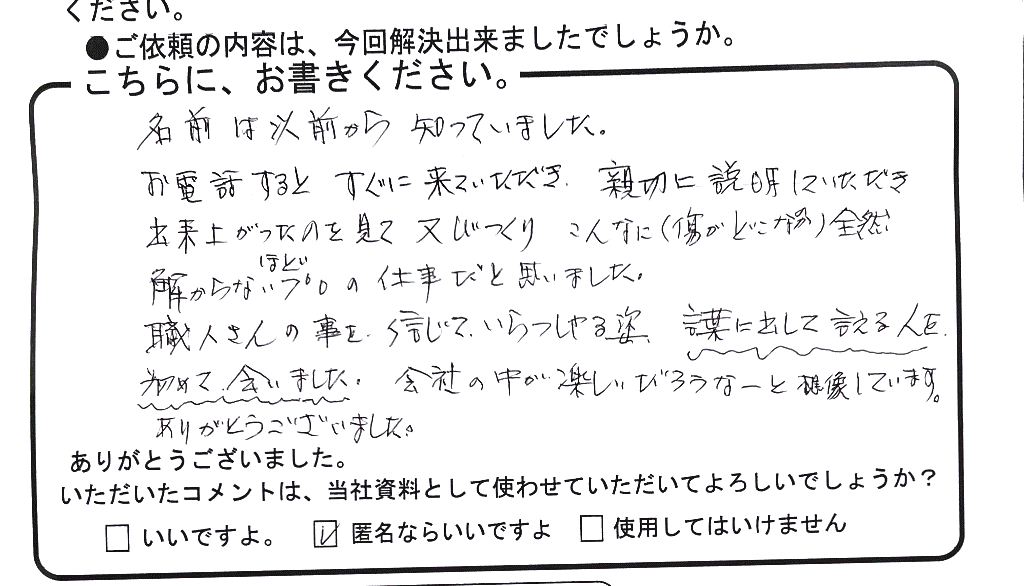 ください。
●ご依頼の内容は、今回解決出来ましたでしょうか。
こちらに、お書きください。
名前は以前から知っていました。
お電話すると すぐに来ていただき、親切に説明していただき
出来上がったのを見て 又びっくり こんなに(傷がどこなのか)全然
解からないほどプロの仕事だと思いました。
職人さんの事を、信じて、いらっしゃる姿、言葉に出して言える人を、
初めて、会いました。会社の中が楽しいだろうなーと想像しています。
ありがとうございました。
ありがとうございました。
いただいたコメントは、当社資料として使わせていただいてよろしいでしょうか?
□いいですよ。 ☑匿名ならいいですよ □使用してはいけません